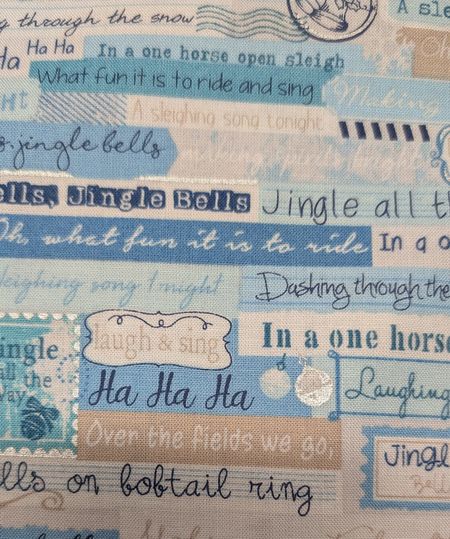 through the snow
A sle
Ha Ha Ha
In a one horse open sleigh
What fun it is to ride and sing
Making
A sleighing song tonight
jingle bells
making spirits bright
ells, Jingle Bells
Jingle all th
Oh, what fun it is to ride
In a o
leighing song tonight
Dashing through the
ingle
all the
way
laugh & sing
In a one horse
Ha Ha Ha
Laughing
Over the fields we go,
Jingl
Bells
lls on bobtail ring